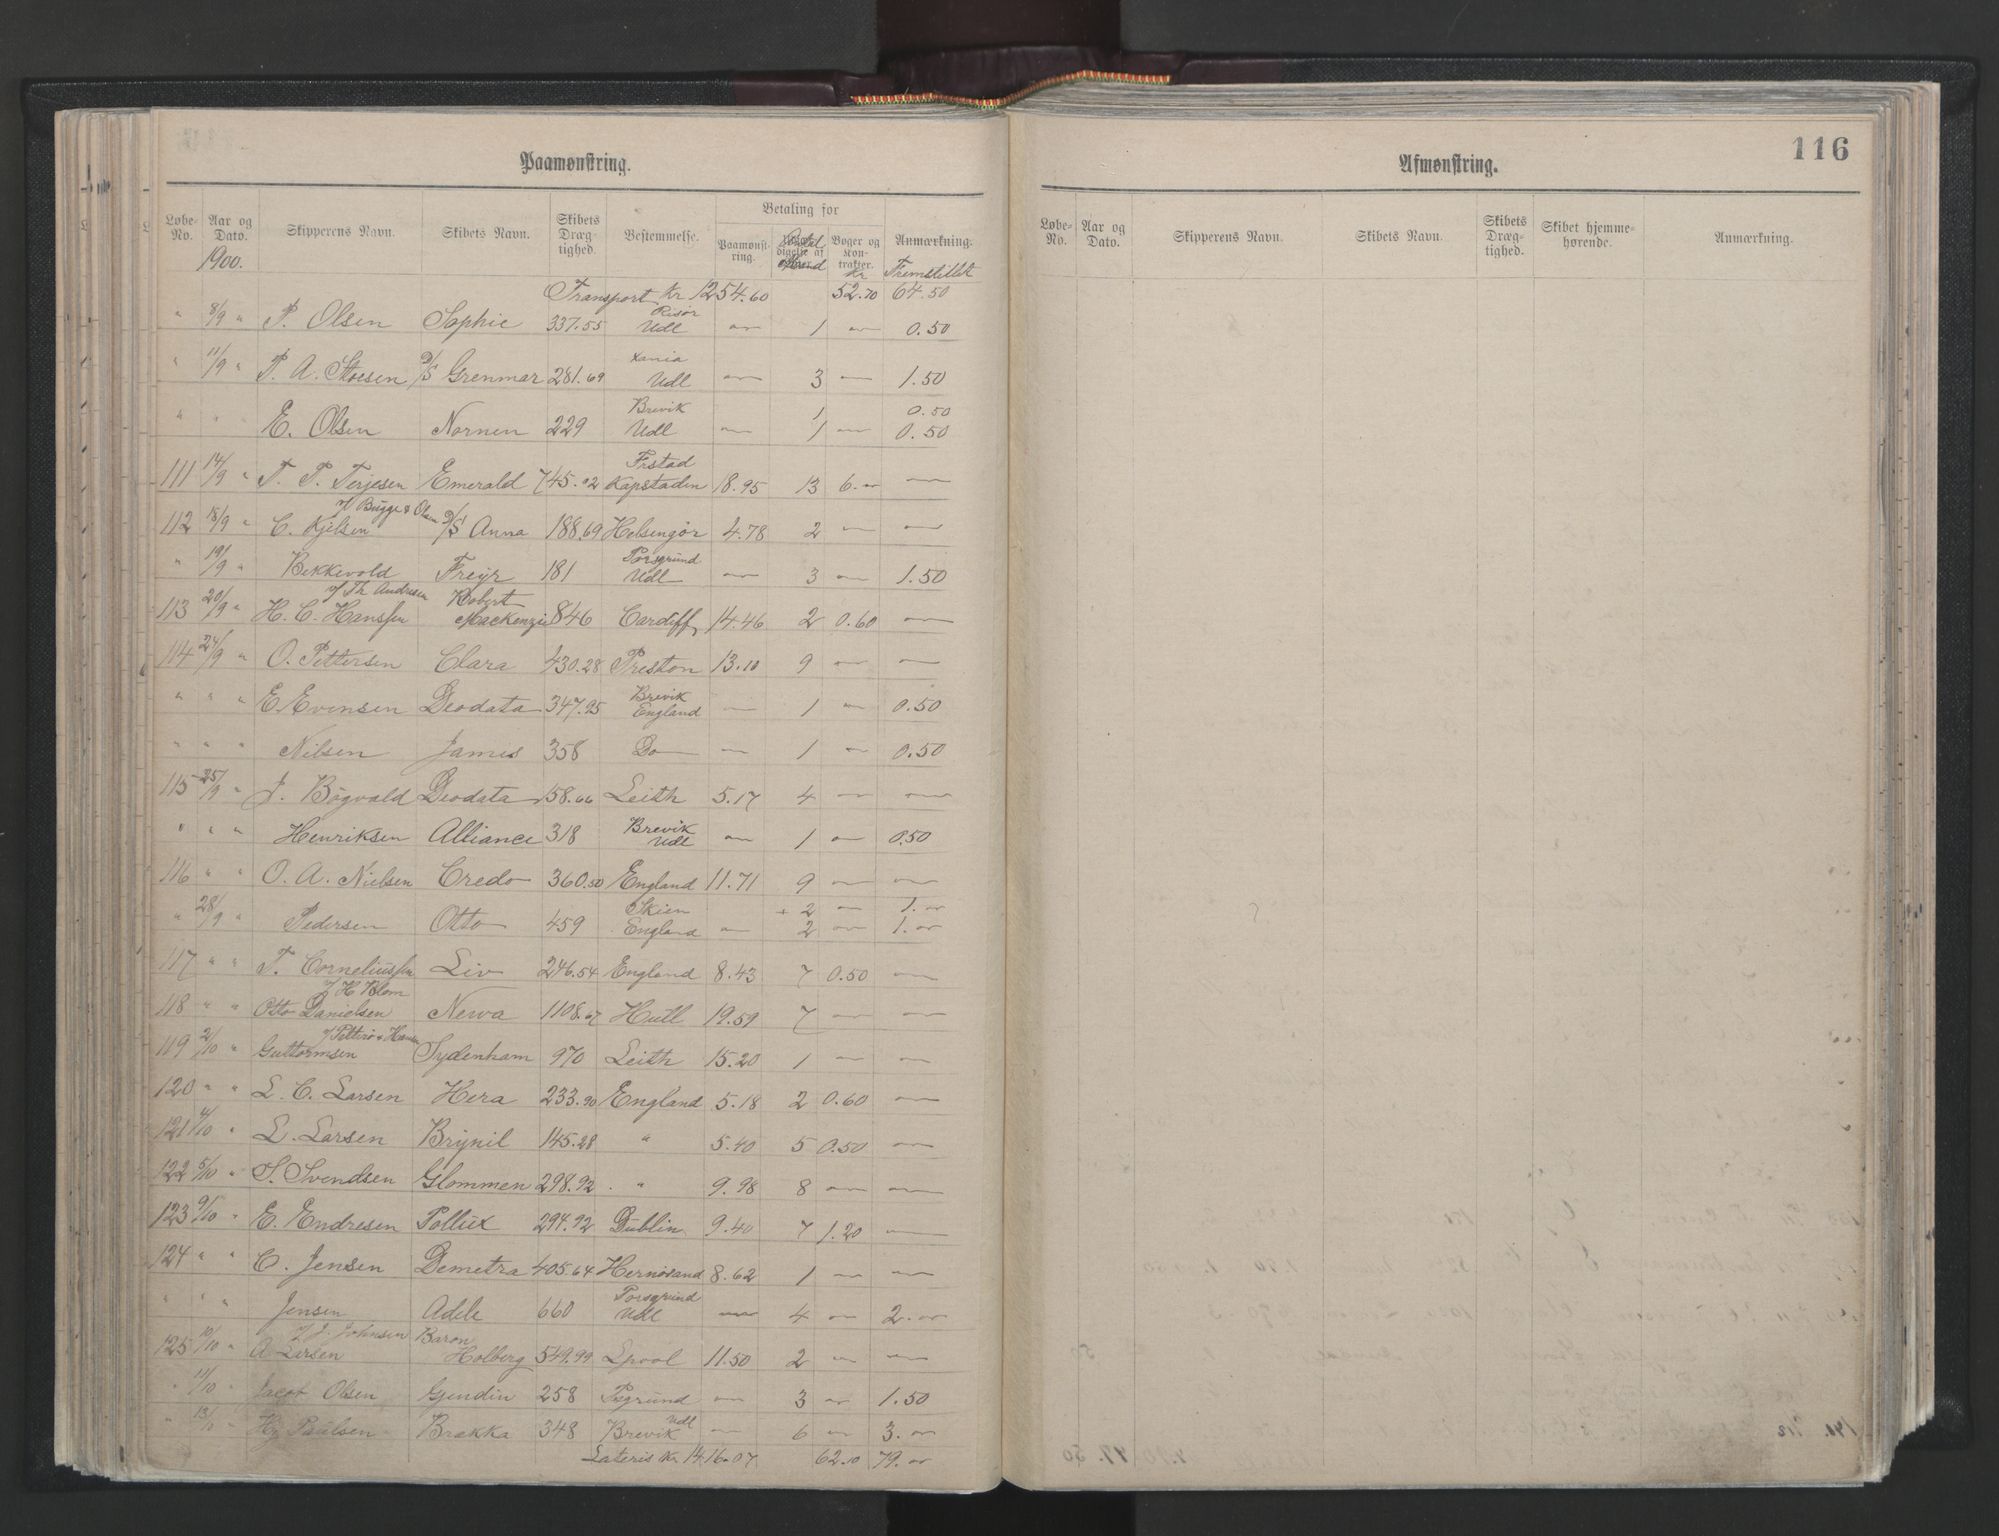 Paamønstring.
Løbe-No. Aar og Dato. Skipperens Navn. Skibets Navn. Skibets Dræg-tighed. Bestemmelse. Betaling for Paamønst-ring. Antal Mand Bøger og Kon-trakter. Anmærkning.
1900. Kr Fremstillet
Transport Kr 1254.60 52.70 64.50
" 8/9 " P. Olsen Sophie 337.55 Risør Udl — 1 — 0.50
" 11/9 " P. A. Stoesen D/S Grenmar 281.69 Xania Udl — 3 — 1.50
" " E. Olsen Nornen 229 Brevik Udl — 1 1 — 0.50 0.50
111 14/9 " T. P. Terjesen Emerald 745.92 Frstad Kapstaden 18.95 13 6.— —
112 18/9 " C. Kjelsen v/ Bugge & Olsen D/S Anna 188.69 Helsingør 4.78 2 — —
" 19/9 " Bekkevold Freyr 181 Porsgrund Udl — 3 — 1.50
113 20/9 " H. C. Hanssen v/ Th Andresen Robert Mackenzie 846 Cardiff 14.46 2 0.60 —
114 24/9 " O. Pettersen Clara 430.28 Preston 13.10 9 — —
" " " E. Evensen Deodata 347.95 Brevik England — 1 — 0.50
" " " Nilsen James 358 Do — 1 — 0.50
115 25/9 " J. Bøgvald Deodata 158.66 Leith 5.17 4 — —
" " " Henriksen Alliance 318 Brevik Udl — 1 — 0.50
116 " " O. A. Nielsen Credo 360.50 England 11.71 9 — —
" 28/9 " Pedersen Otto 459 Skien England — + 2 2 — 1.— 1.—
117 " " T. Corneliussen Liv 246.54 England 8.43 7 0.50 —
118 " " Otto Danielsen v/ H Blom Newa 1108.67 Hull 19.59 7 — —
119 2/10 " Guttormsen Sydenham 970 Leith 15.20 1 — —
120 " " L. C. Larsen Hera 233.90 England 5.18 2 0.60 —
121 4/10 " L. Larsen Brynil 145.28 " 5.40 5 0.50 —
122 5/10 " S. Svendsen Glommen 298.92 " 9.98 8 — —
123 9/10 " E. Endresen Pollux 294.92 Dublin 9.40 7 1.20 —
124 " " C. Jensen Demetra 405.64 Hernøsand 8.62 1 — —
" " " Jensen Adele 660 Porsgrund Udl — 4 — 2.—
125 10/10 " A Larsen v/ J. Johnsen Baron Holberg 549.99 Lpool 11.50 2 — —
" 11/10 " Jacob Olsen Gjendin 258 Psgrund — 3 — 1.50
" 13/10 " Hj Paulsen Brække 348 Brevik Udl — 6 — 3.—
Lateris Kr 1416.07 62.10 79.—
116
Afmønstring.
Løbe-No. Aar og Dato. Skipperens Navn. Skibets Navn. Skibets Dræg-tighed. Skibet hjemme-hørende. Anmærkning.